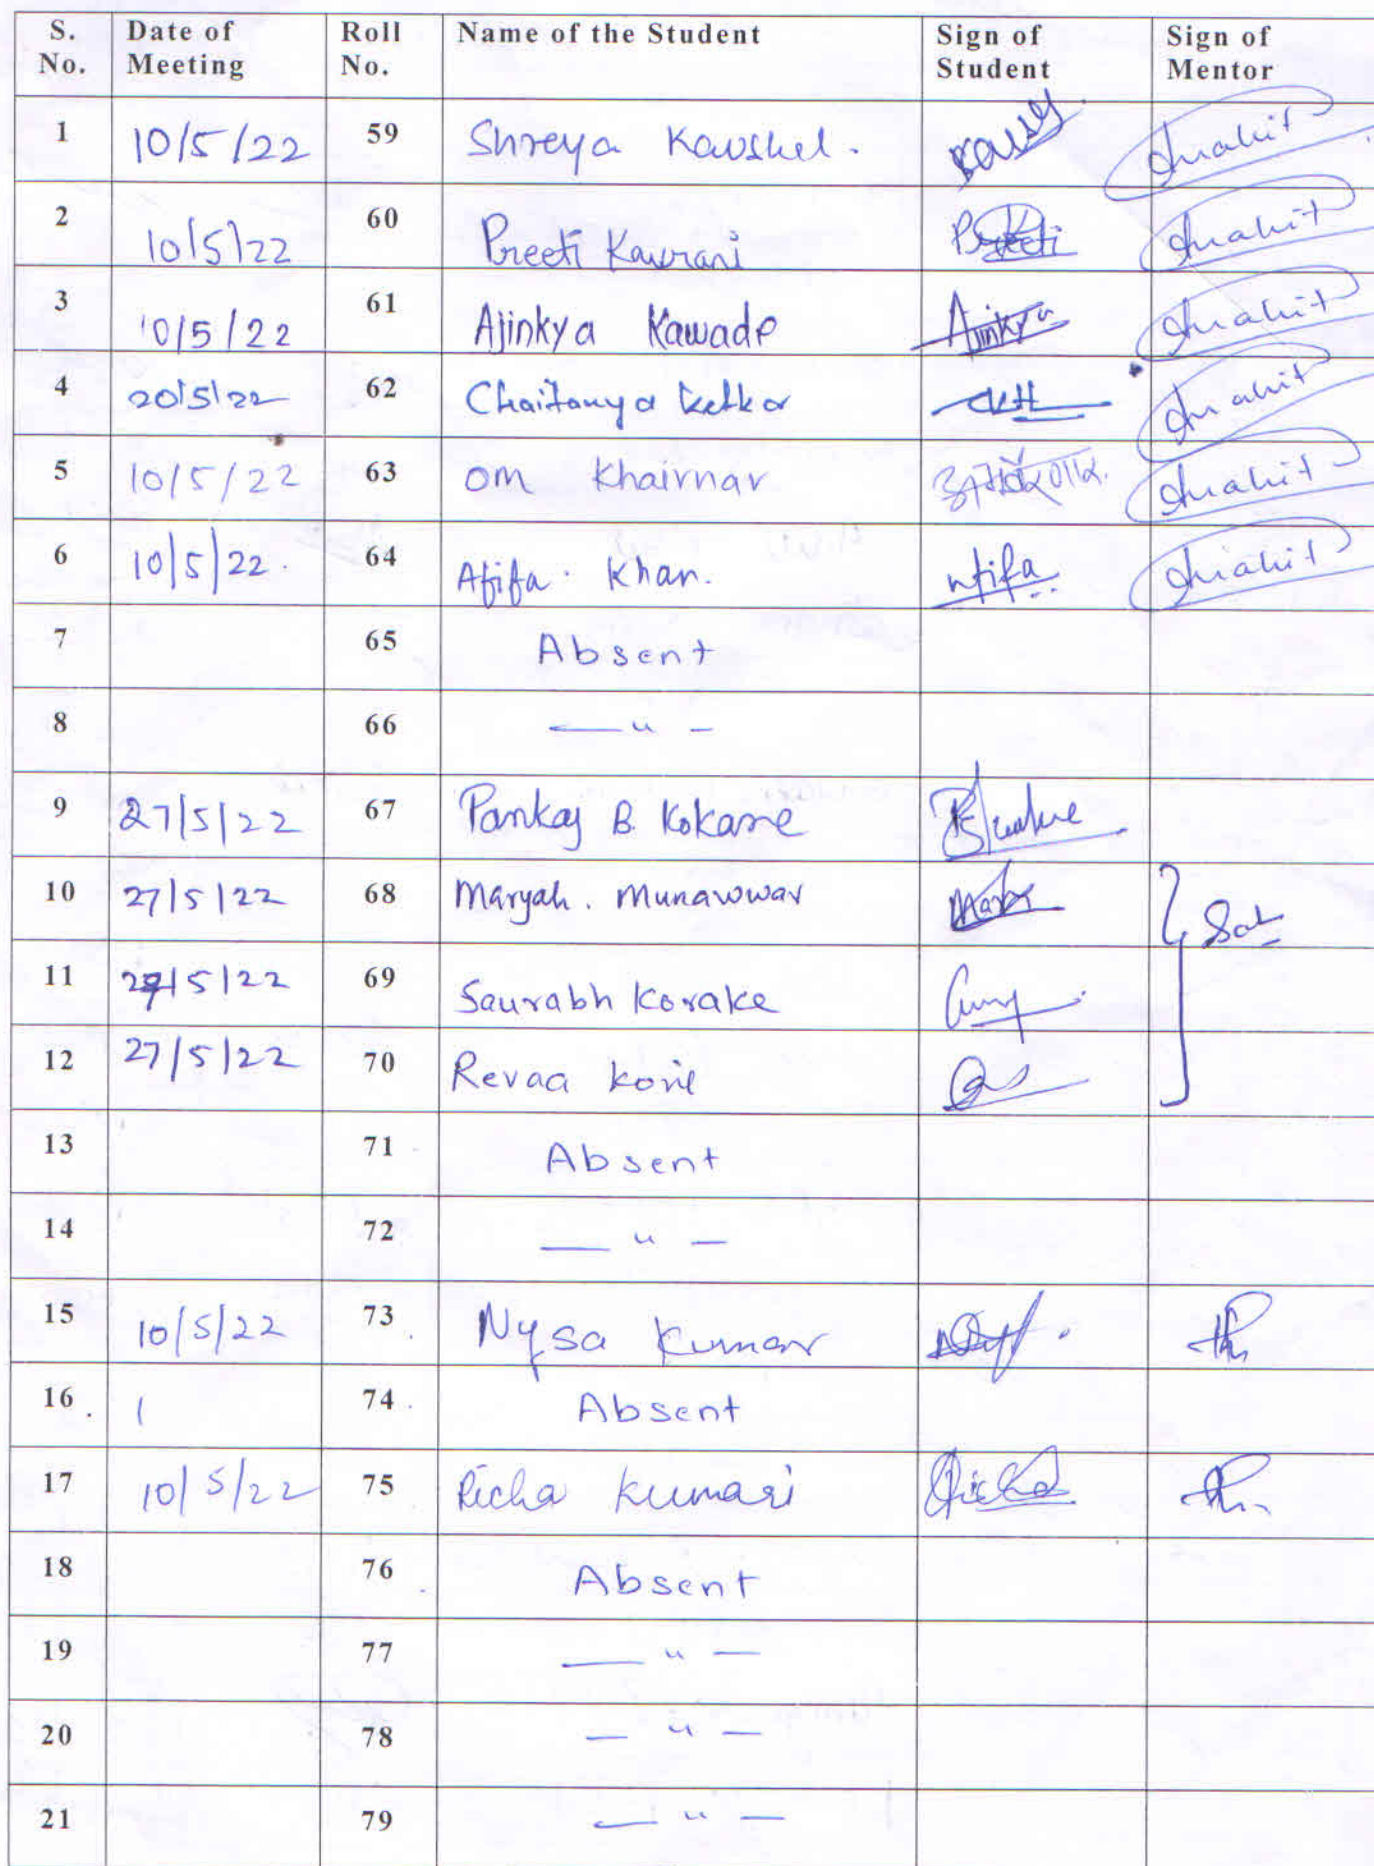 S. No. Date of Meeting Roll No. Name of the Student Sign of Student Sign of Mentor
1 10/5/22 59 Shreya Kaushel.
2 10/5/22 60 Preeti Kawrani Preeti
3 10/5/22 61 Ajinkya Kawade Ajinkya
4 20/5/22 62 Chaitanya Ketkar
5 10/5/22 63 Om Khairnar
6 10/5/22. 64 Afifa. Khan. Afifa
7 65 Absent
8 66 — " —
9 27/5/22 67 Pankaj B. Kokane
10 27/5/22 68 Maryah. Munawwar
11 27/5/22 69 Saurabh Korake
12 27/5/22 70 Revaa
13 71 Absent
14 72 — " —
15 10/5/22 73 Nysa Kumar
16 74 Absent
17 10/5/22 75 Richa Kumari Richa
18 76 Absent
19 77 — " —
20 78 — " —
21 79 — " —